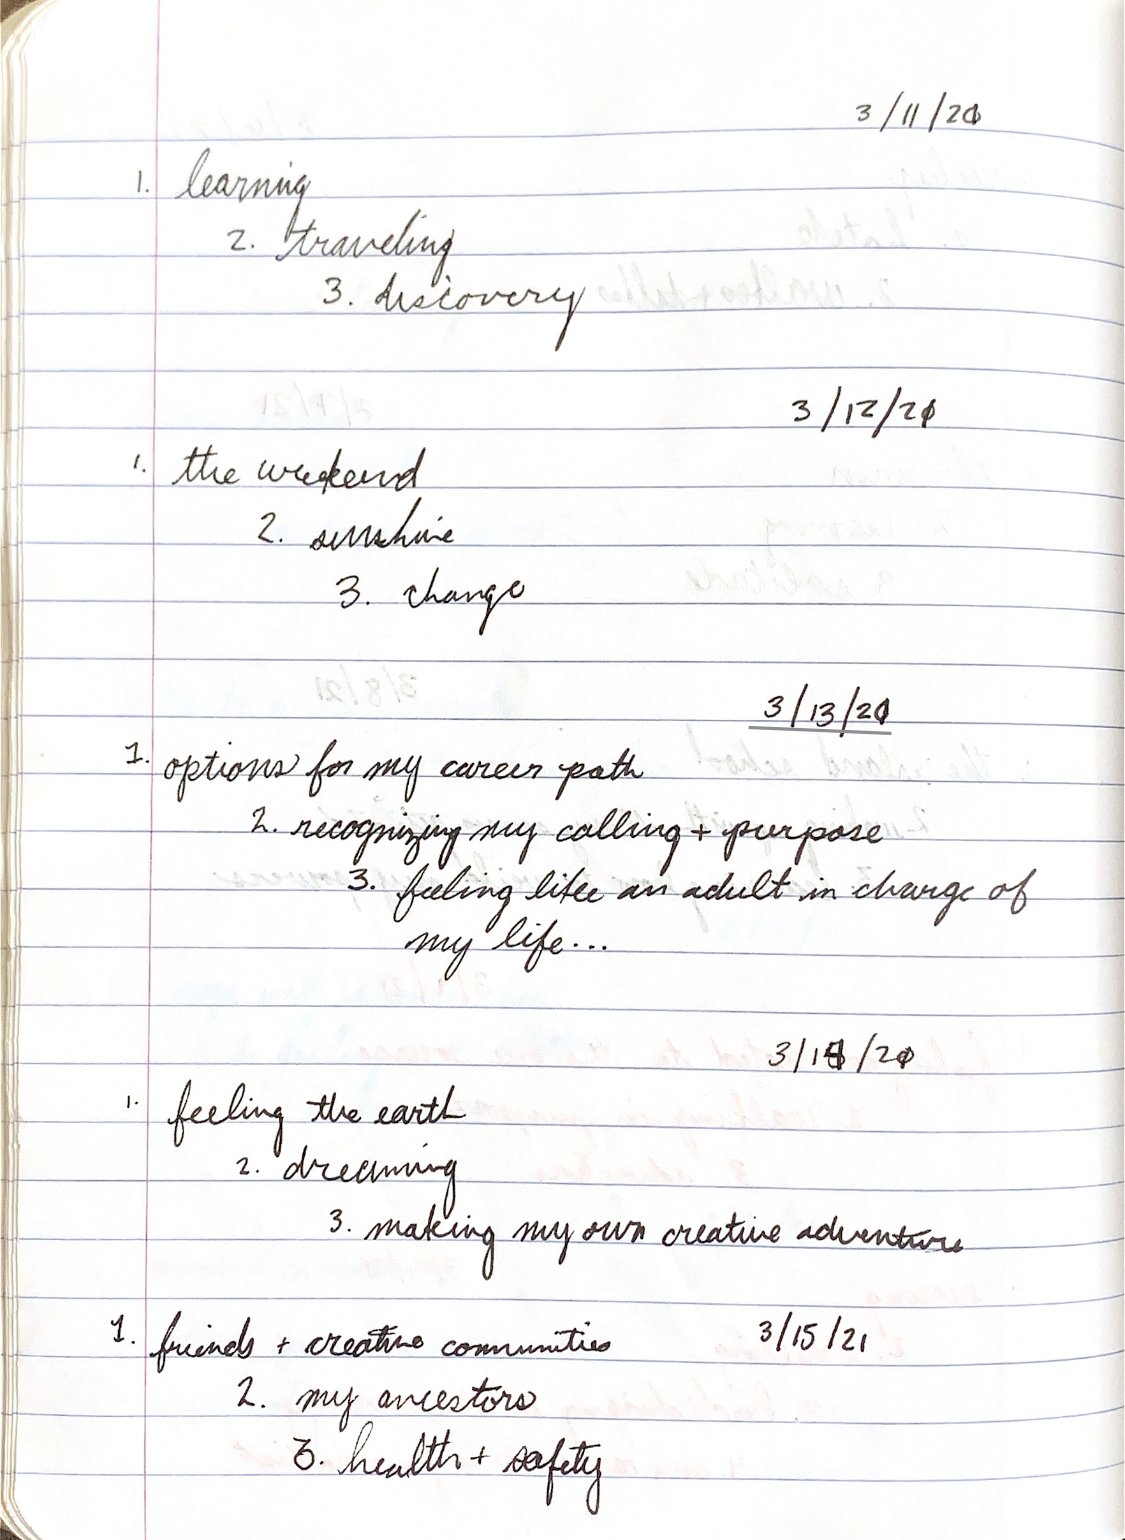 3/11/21
1. learning
2. traveling
3. discovery
3/12/21
1. the weekend
2. sunshine
3. change
3/13/21
1. options for my career path
2. recognizing my calling + purpose
3. feeling like an adult in charge of
my life...
3/14/21
1. feeling the earth
2. dreaming
3. making my own creative adventure
1. friends + creative communities 3/15/21
2. my ancestors
3. health + safety